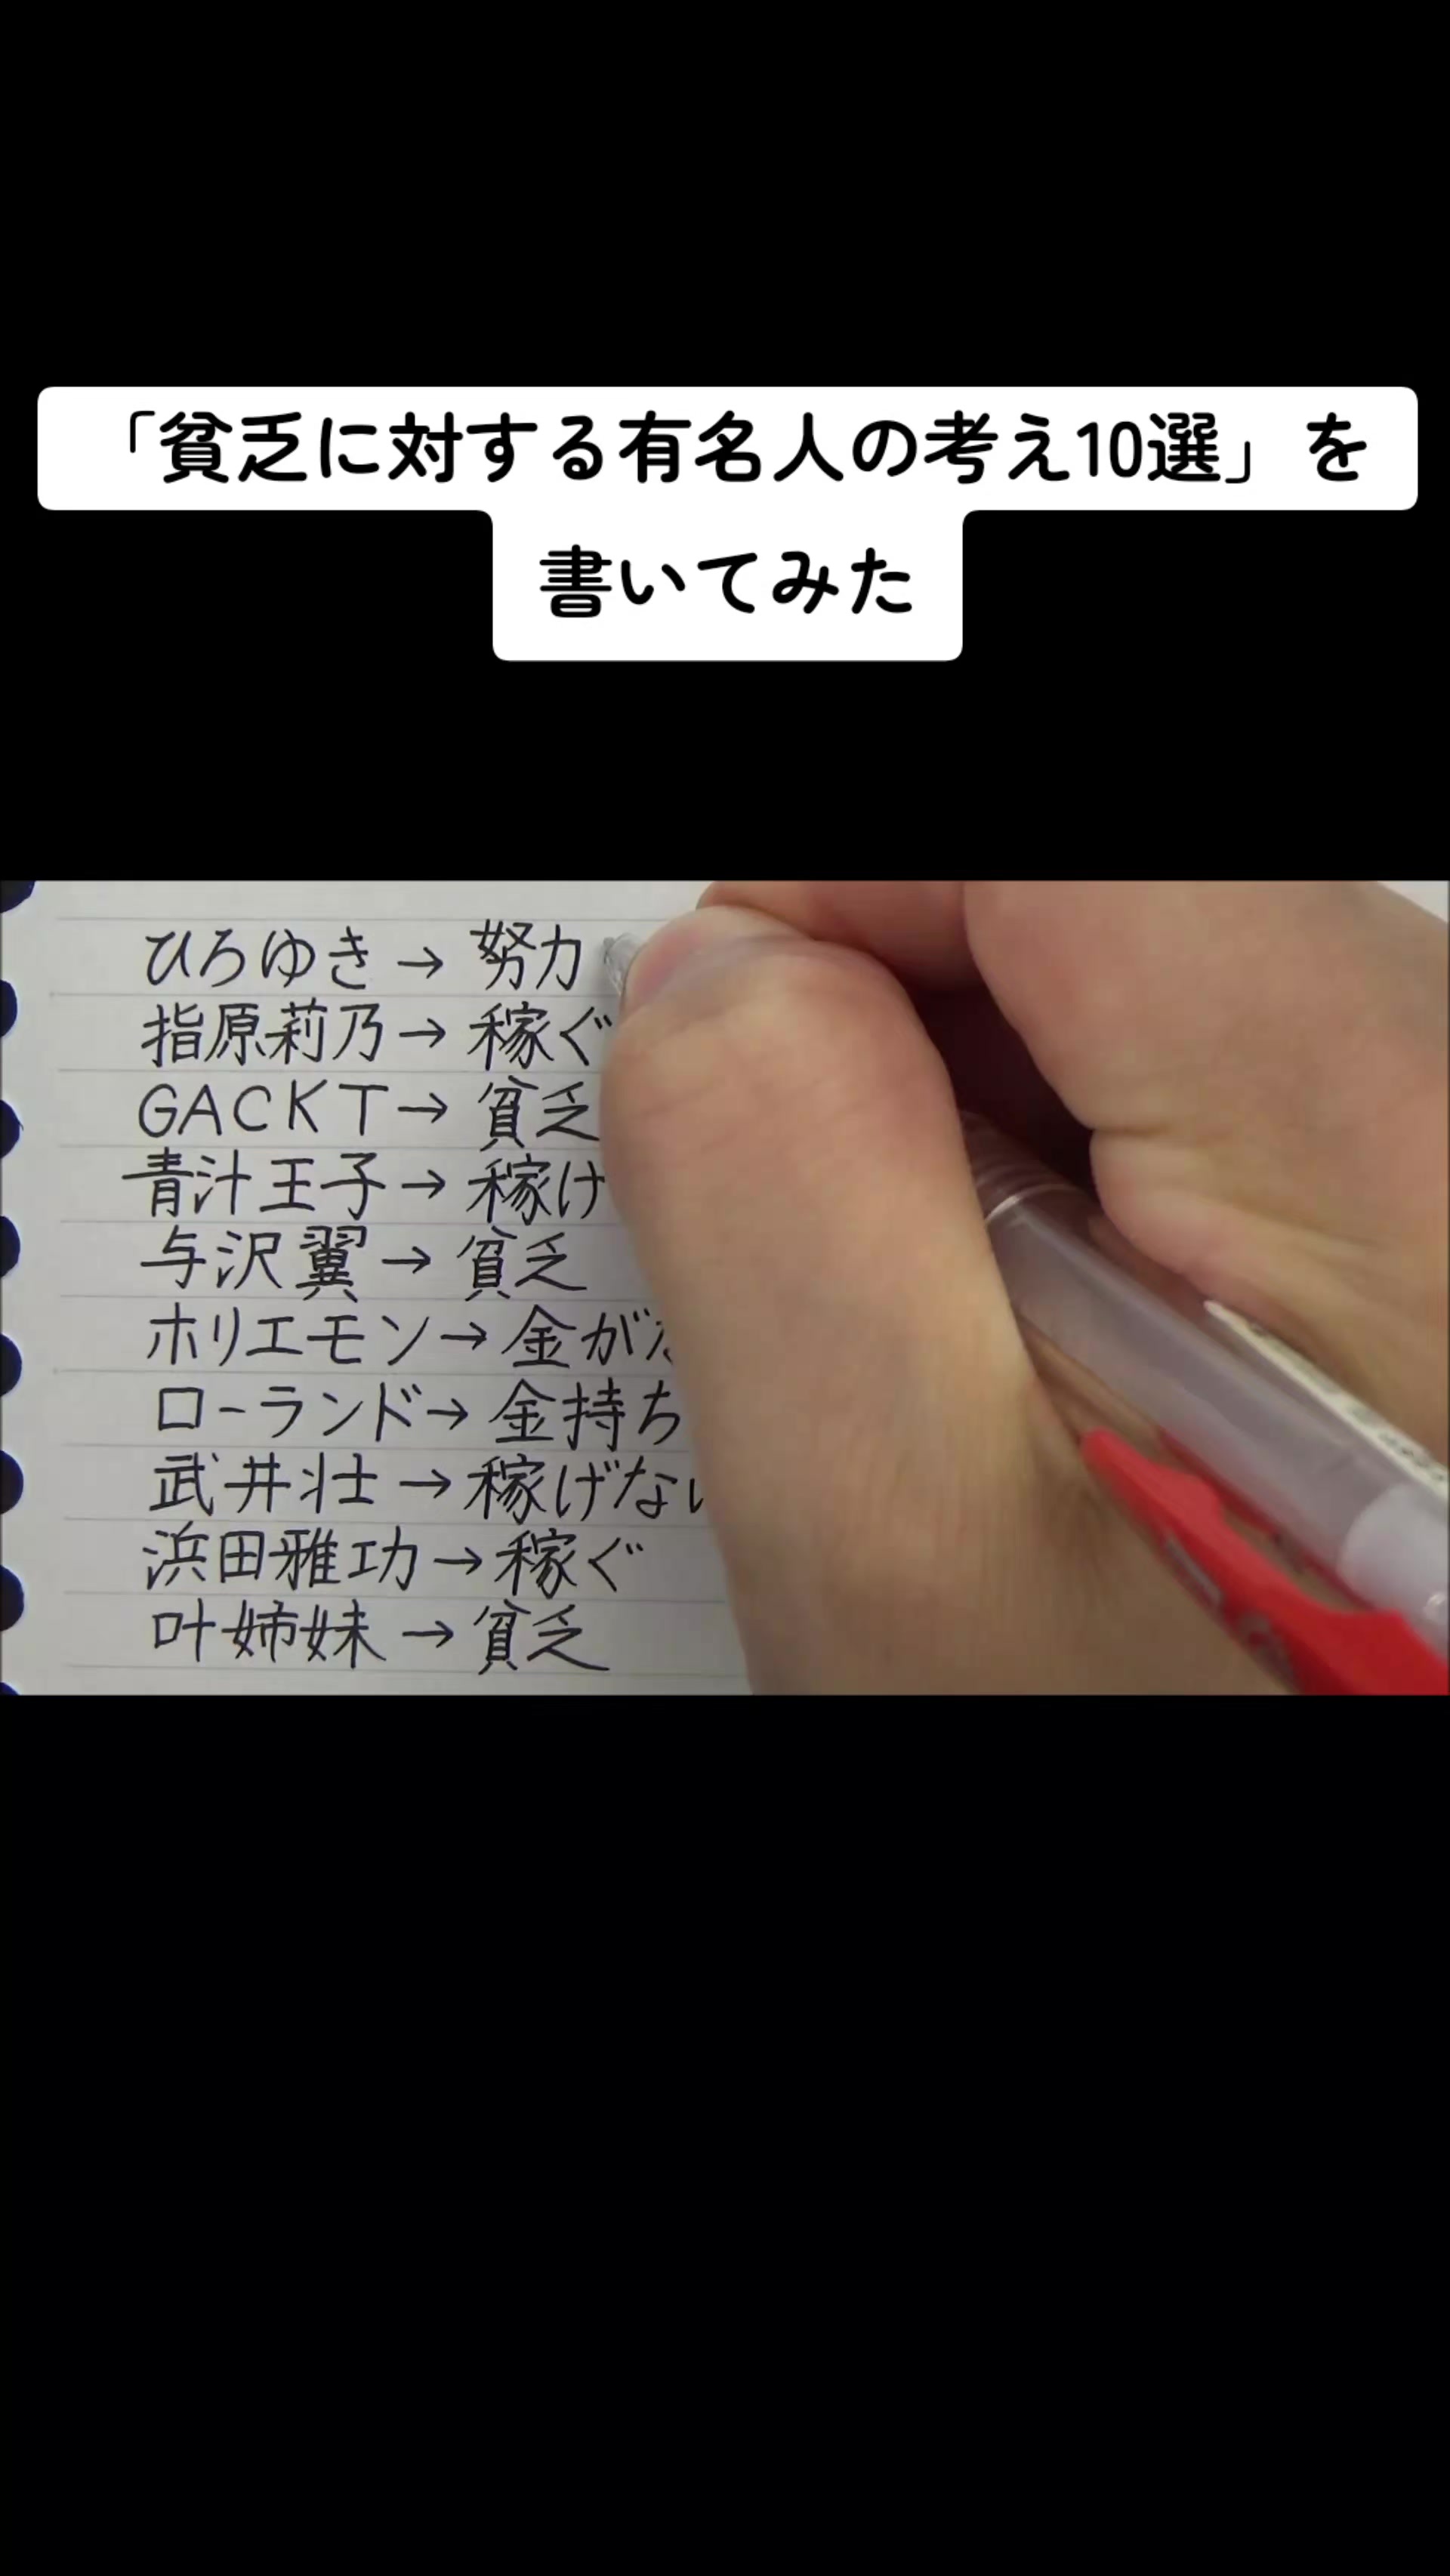 「貧乏に対する有名人の考え10選」を
書いてみた
ひろゆき→努力
指原莉乃→稼ぐ
GACKT→貧乏
青汁王子→稼げ
与沢翼→貧乏
ホリエモン→金が
ローランド→金持ち
武井壮→稼げない
浜田雅功→稼ぐ
叶姉妹→貧乏